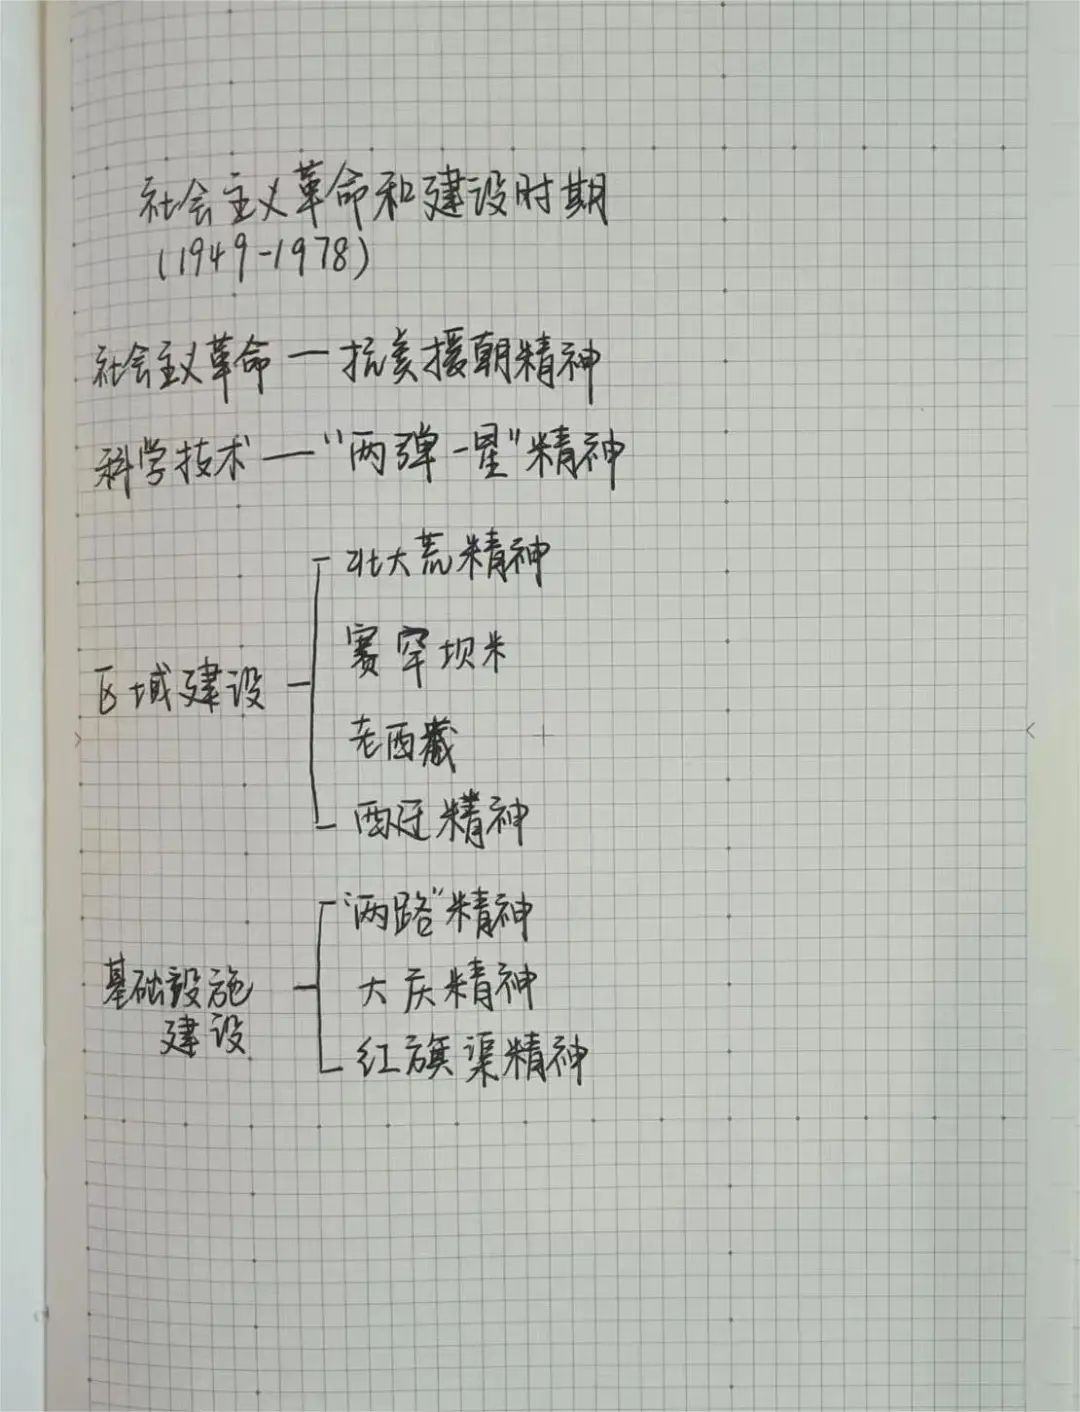 社会主义革命和建设时期
(1949-1978)
社会主义革命 — 抗美援朝精神
科学技术 — "两弹一星"精神
区域建设
北大荒精神
赛罕坝米
老西藏
西迁精神
基础設施
建设
"两路"精神
大庆精神
红旗渠精神